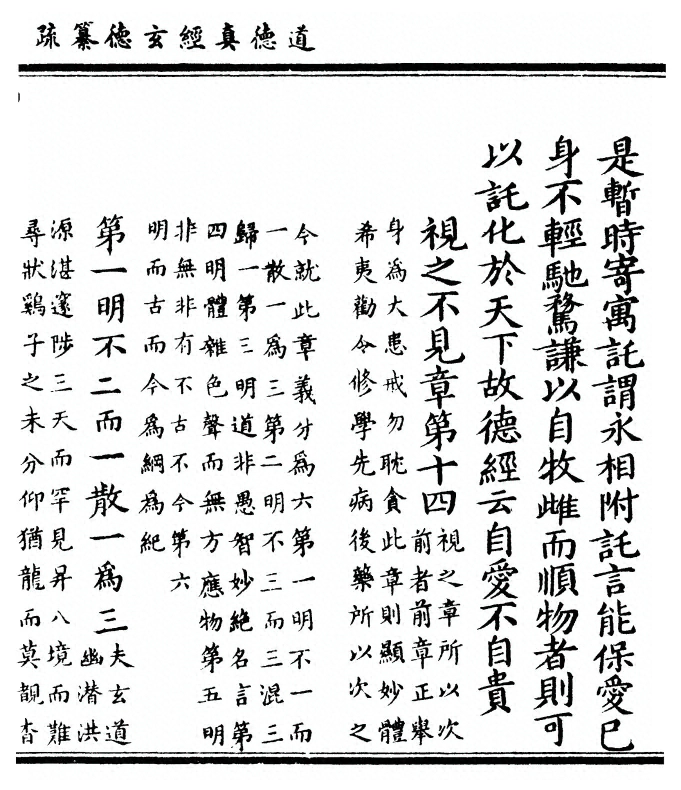 道德真經玄德纂疏
是暫時寄寓託謂永相附託言能保愛已
身不輕馳騖謙以自牧雌而順物者則可
以託化於天下故德經云自愛不自貴
視之不見章第十四
視之章所以次
前者前章正舉
身爲大患戒勿耽貪此章則顯妙體
希夷勸令修學先病後藥所以次之
今就此章義分爲六第一明不一而
一散一爲三第二明不三而三混三
歸一第三明道非愚智妙絕名言第
四明體雜色聲而無方應物第五明
非無非有不古不今第六
明而古而今爲綱爲紀
第一明不二而一散一爲三
夫玄道
幽潛洪
源湛邃陟三天而罕見昇八境而難
尋狀鷄子之未分仰猶龍而莫覩杳